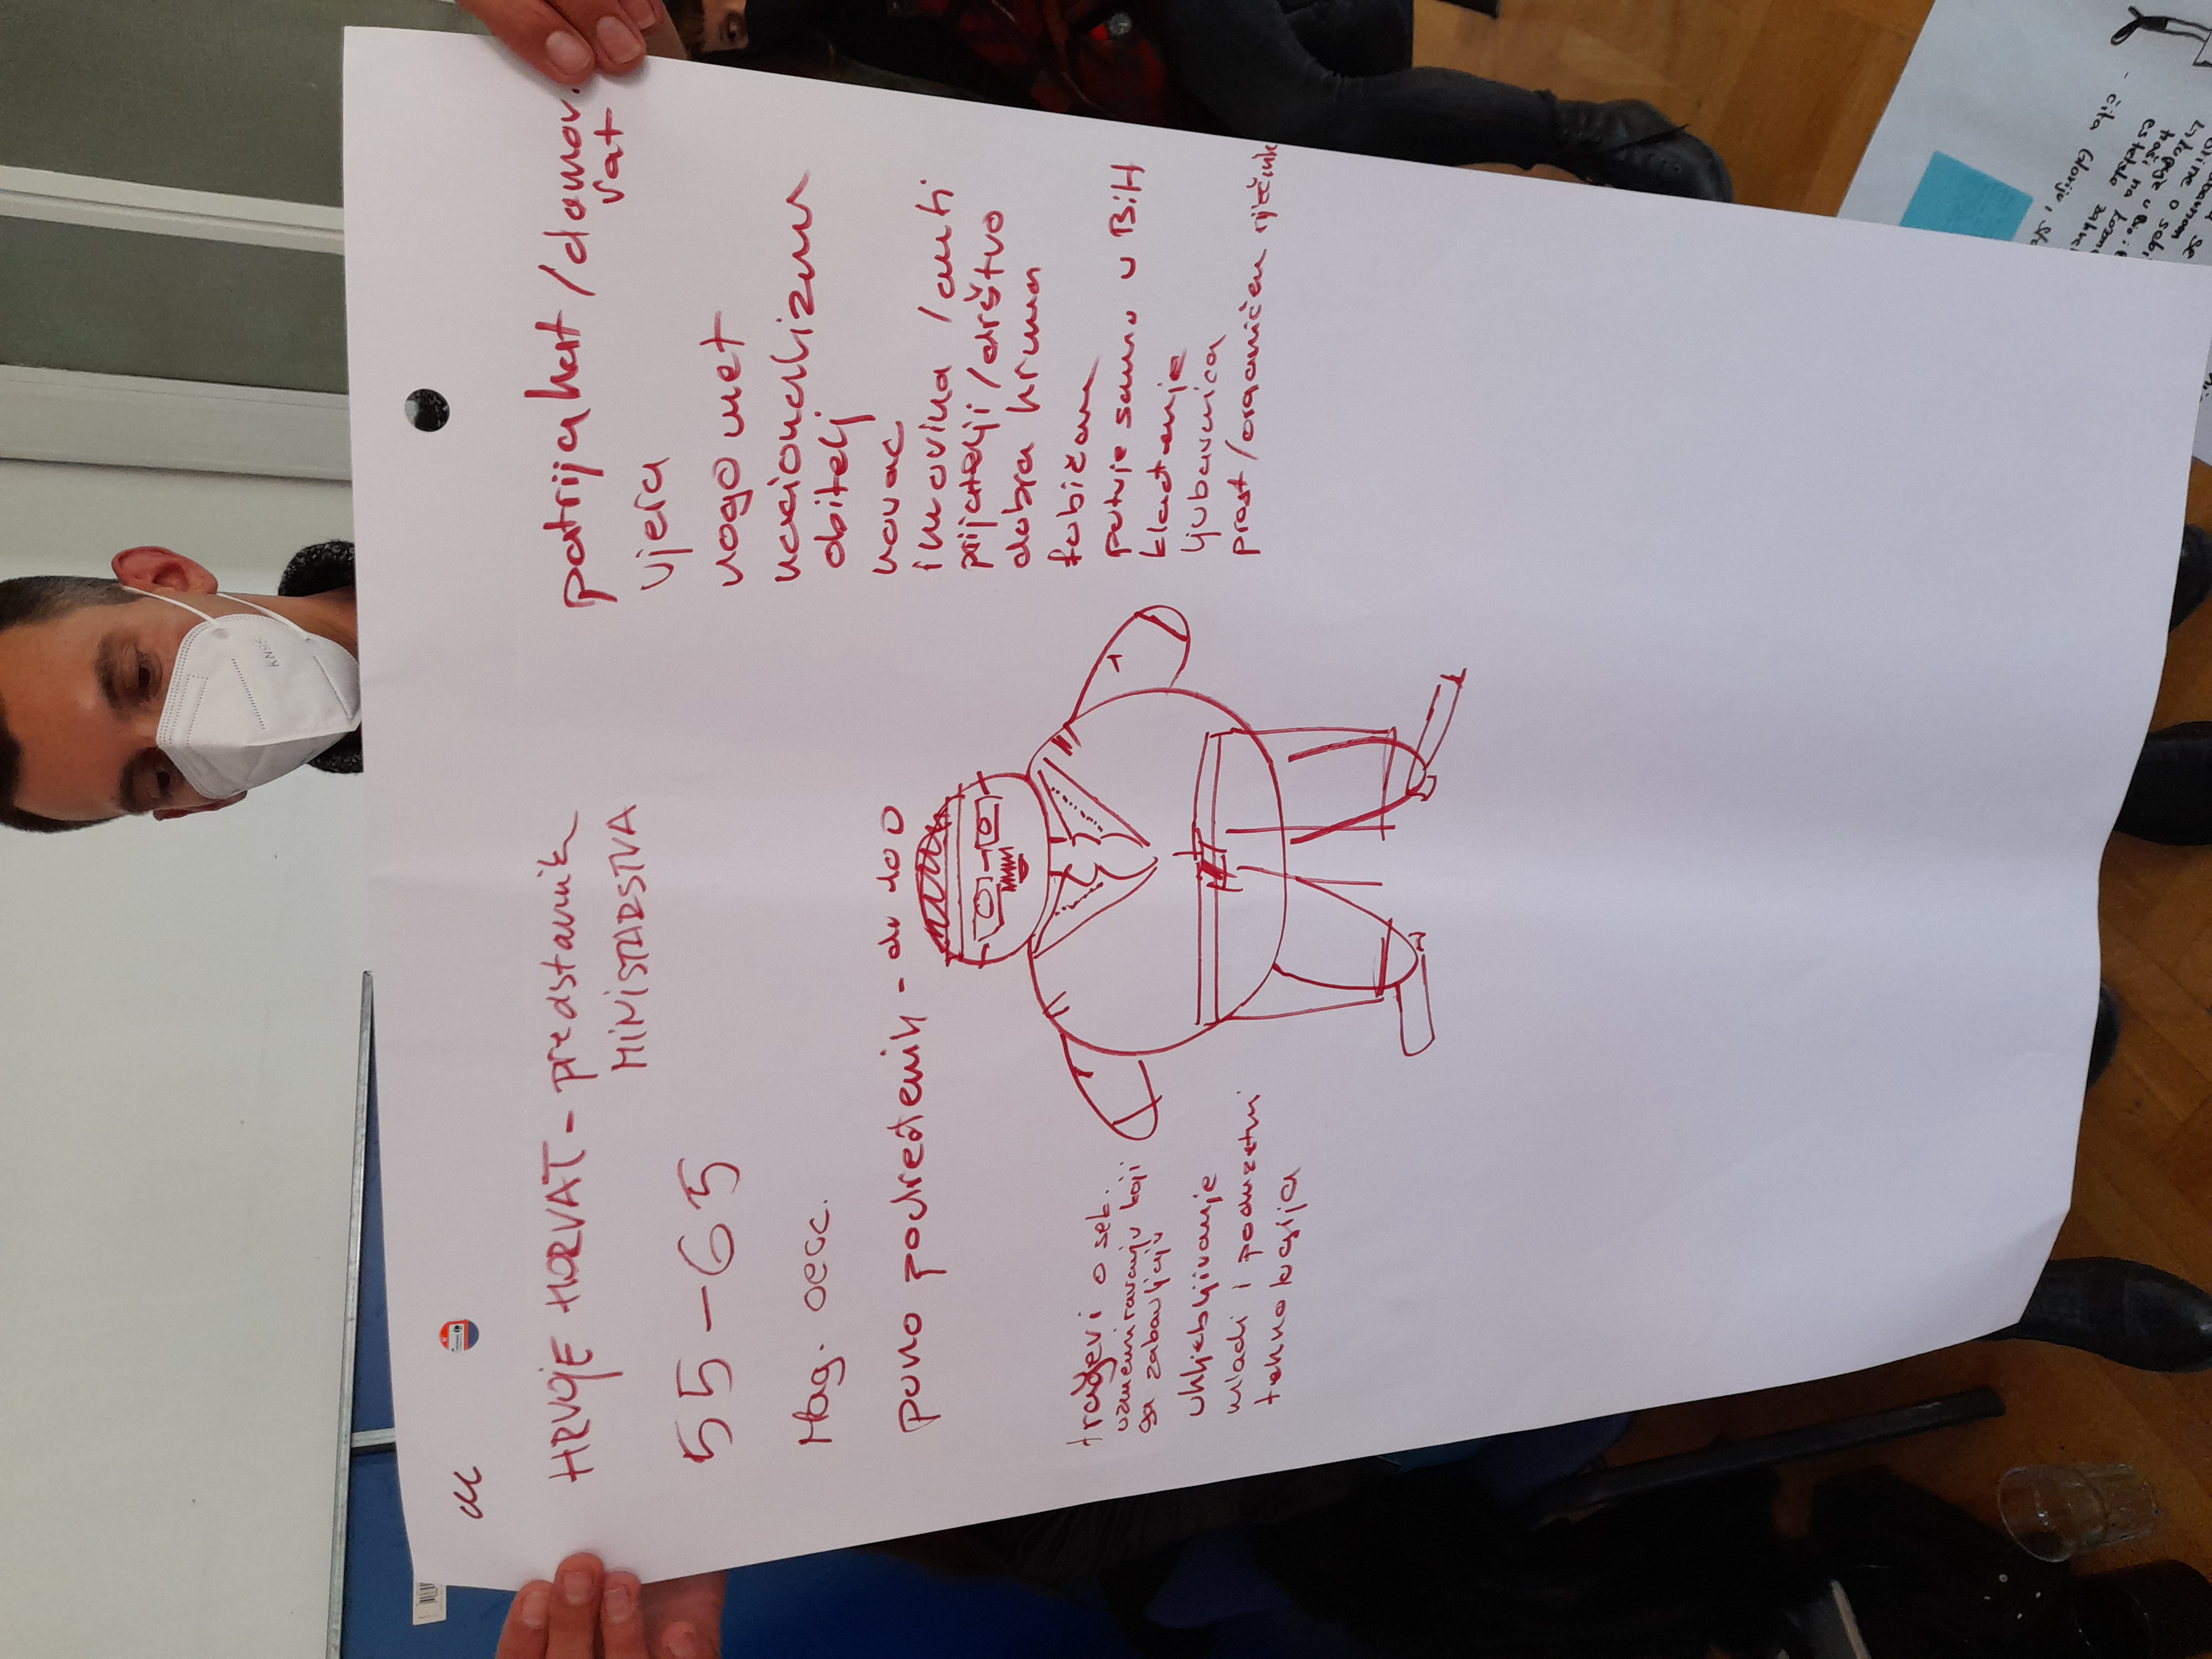 M
HRVOJE HORVAT - predstavnik
MINISTARSTVA
55-65
Mag. oecc.
puno podređenih - do 100
tračevi o seb.
uznemiravaju koji
ga zabavljaju
uhljebljivanje
mladi i poduzetni
tehnologija
patrijahat/domov.
rat
vjera
nogomet
nacionalizam
obitelj
novac
imovina/auti
prijatelji/društvo
dobra hrana
fobičan
putuje samo u BiH
klađenje
ljubavnica
prost/ograničen rječnik
KN95
čita Gloriju,